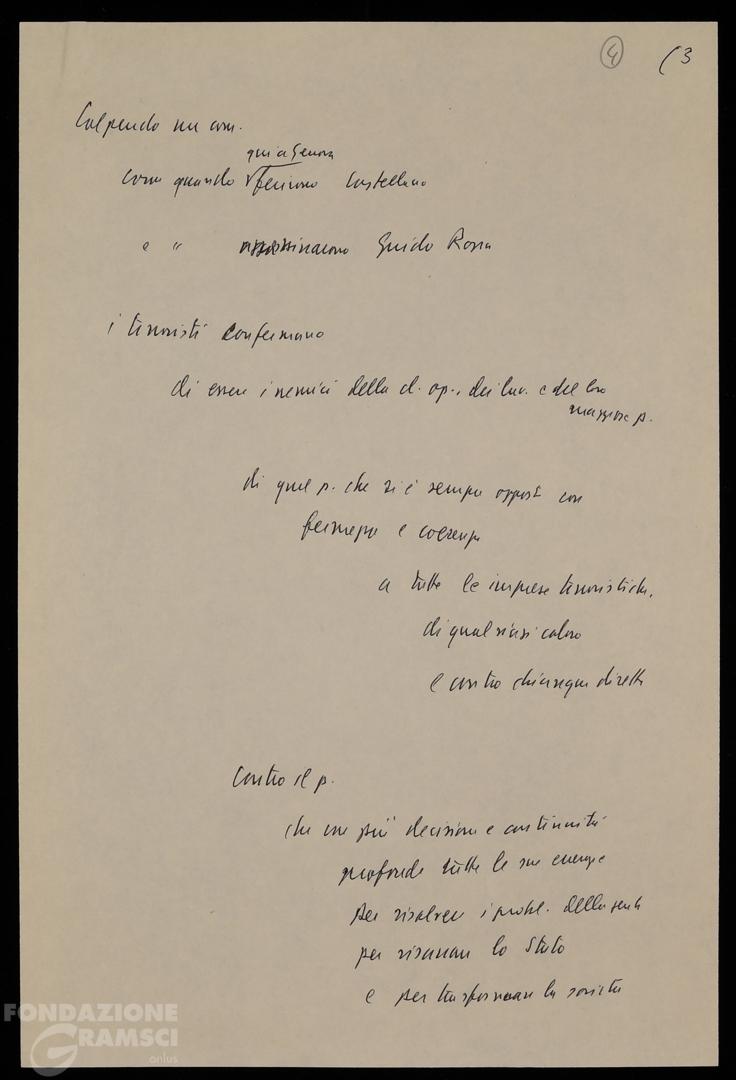 ④ (3
Colpendo un com.
qui a Genova
come quando ferirono Castellano
e " assassinarono Guido Rossa
i terroristi confermano
di essere i nemici della cl. op., dei lav. e del loro
maggiore p.
di quel p. che si è sempre opposto con
fermezza e coerenza
a tutte le imprese terroristiche,
di qualsiasi colore
e contro chiunque dirette
Contro il p.
che con più decisione e continuità
profonde tutte le sue energie
per risolvere i probl. della gente
per risanare lo Stato
e per trasformare la società
FONDAZIONE
GRAMSCI
onlus